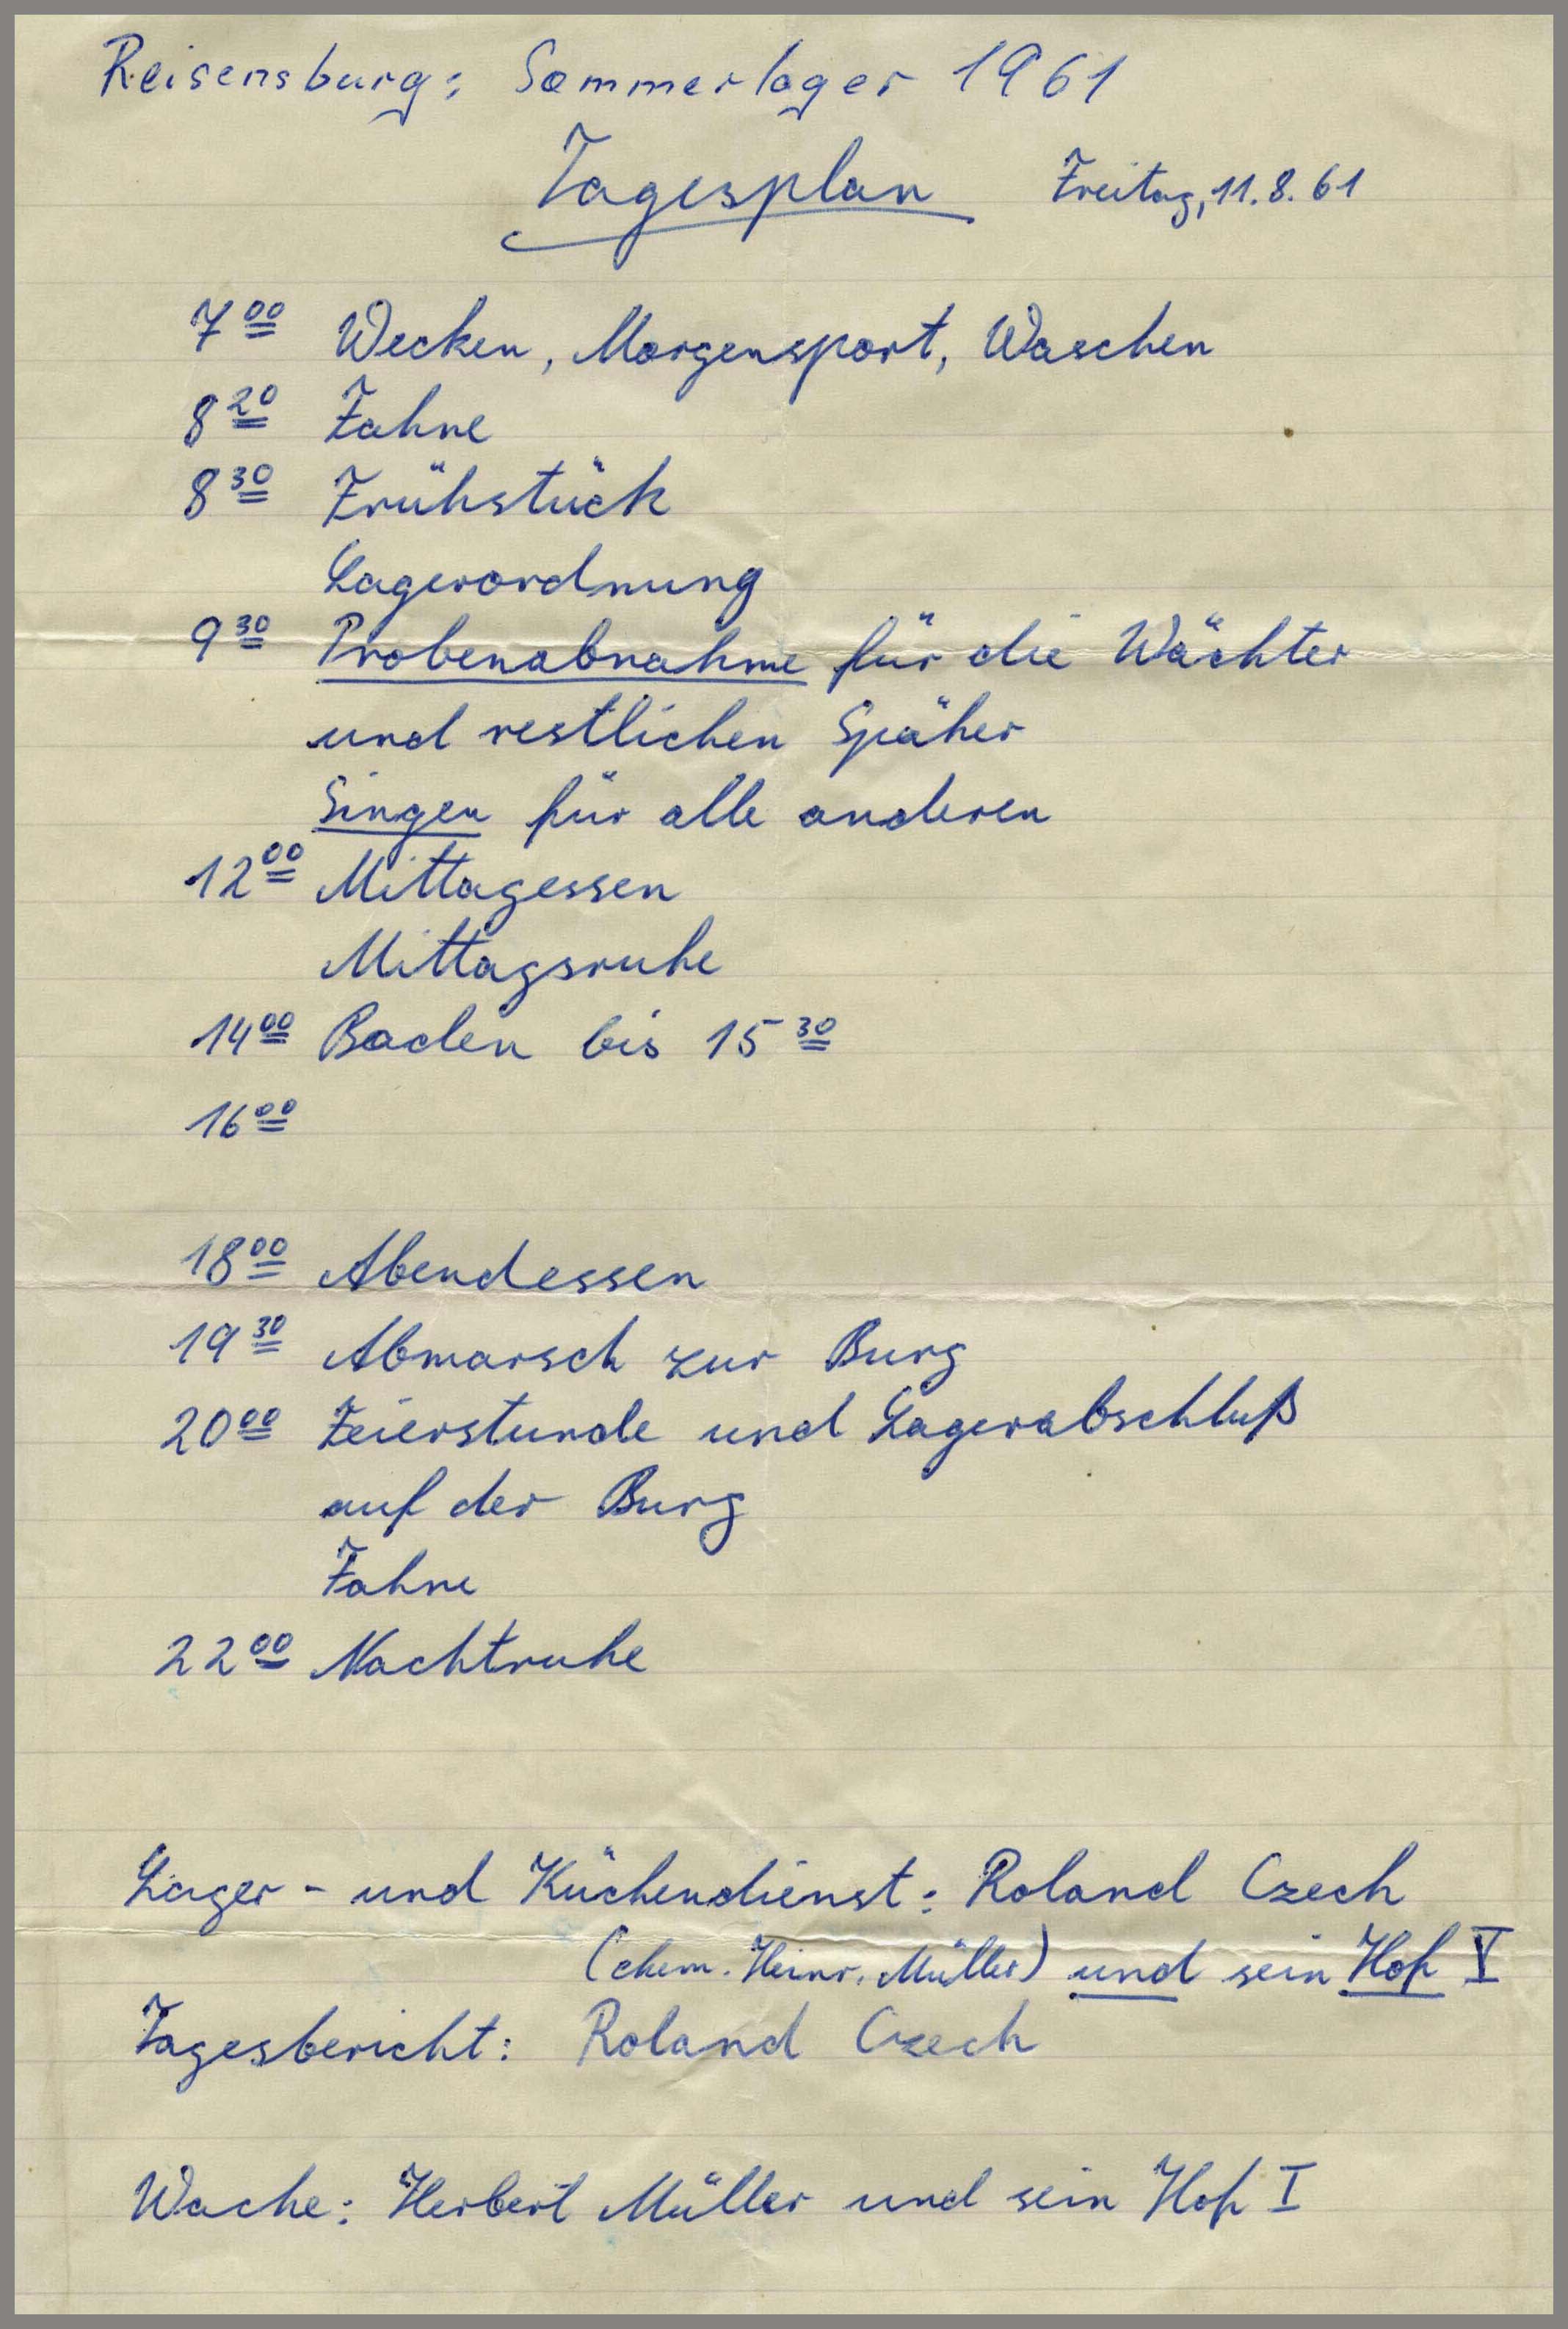 Reisensburg: Sommerlager 1961
Tagesplan Freitag, 11.8.61
7 00 Wecken, Morgensport, Waschen
8 20 Fahne
8 30 Frühstück
Lagerordnung
9 30 Probenabnahme für die Wächter
und restlichen Späher
Singen für alle anderen
12 00 Mittagessen
Mittagsruhe
14 00 Baden bis 15 30
16 00
18 00 Abendessen
19 30 Abmarsch zur Burg
20 00 Feierstunde und Lagerabschluß
auf der Burg
Fahne
22 00 Nachtruhe
Lager- und Küchendienst: Roland Czech
(ehem. Heinr. Müller) und sein Hof V
Tagesbericht: Roland Czech
Wache: Herbert Müller und sein Hof I